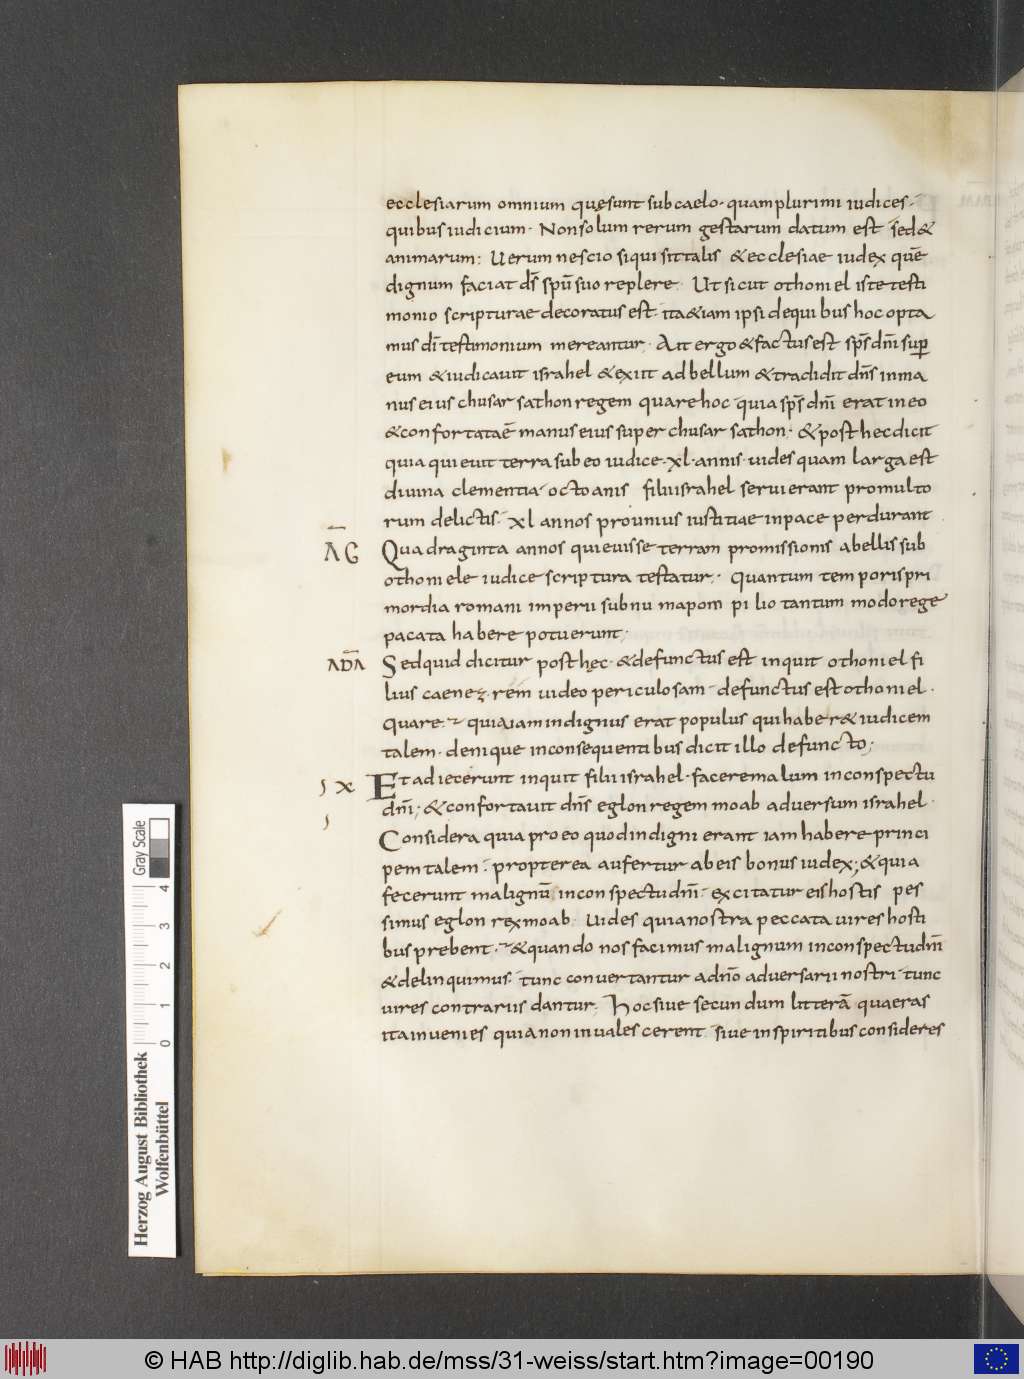 ecclesiarum omnium quęsunt subcaelo· quamplurimi iudices·
quibus iudicium· Nonsolum rerum gestarum datum est sed&
animarum: Uerum nescio siqui sit talis &ecclesiae iudex quē
dignum faciat ds̄ spū suo replere· Ut sicut othoniel iste testi
monio scripturae decoratus est· ita&iam ipsi dequibus hoc opta
mus dī testimonium mereantur· Ait ergo &factus est sps̄ dnī sup̄
eum &iudicauit israhel &exiit adbellum &tradidit dns̄ inma
nus eius chusar sathon regem quare hoc quia sps̄ dnī erat in eo
&confortataē manus eius super chusar sathon· &post hec dicit
quia quieuit terra sub eo iudice· xl· annis· uides quam larga est
diuina clementia· octo anis filii israhel seruierant pro multo
rum delictis· xl annos pro unius iustitiae inpace perdurant
AG Quadraginta annos quieuisse terram promissionis abellis sub
othoniele iudice scriptura testatur· quantum temporis pri
mordia romani imperii sub numa pom pilio tantum modo rege
pacata habere potuerunt;
ADA Sed quid dicitur post hęc· &defunctus est inquit othoniel fi
lius caenez· rem uideo periculosam· defunctus est othoniel·
quare· quia iam indignus erat populus qui haber& iudicem
talem· denique inconsequentibus dicit illo defuncto;
x Et adiecerunt inquit filii israhel· facere malum inconspectu
dnī; &confortauit dns̄ eglon regem moab aduersum israhel·
Considera quia pro eo quod indigni erant iam habere princi
pem talem· propterea aufertur abeis bonus iudex; &quia
fecerunt malignū inconspectu dnī· excitatur eis hostis pes
simus eglon rex moab· Uides quia nostra peccata uires hosti
bus prebent· &quando nos facimus malignum inconspectu dnī
&delinquimus· tunc conuertantur adnō aduersarii nostri· tunc
uires contrariis dantur· Hoc siue secundum litterā quaeras
ita inuenies quia non inualescerent siue in spiritibus consideres
Herzog August Bibliothek
Wolfenbüttel
Gray Scale
0 1 2 3 4
© HAB http://diglib.hab.de/mss/31-weiss/start.htm?image=00190